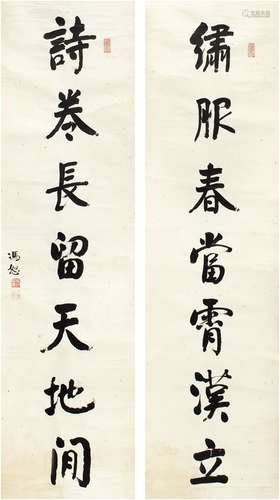 繡服春當霄漢立
詩卷長留天地間
馮恕